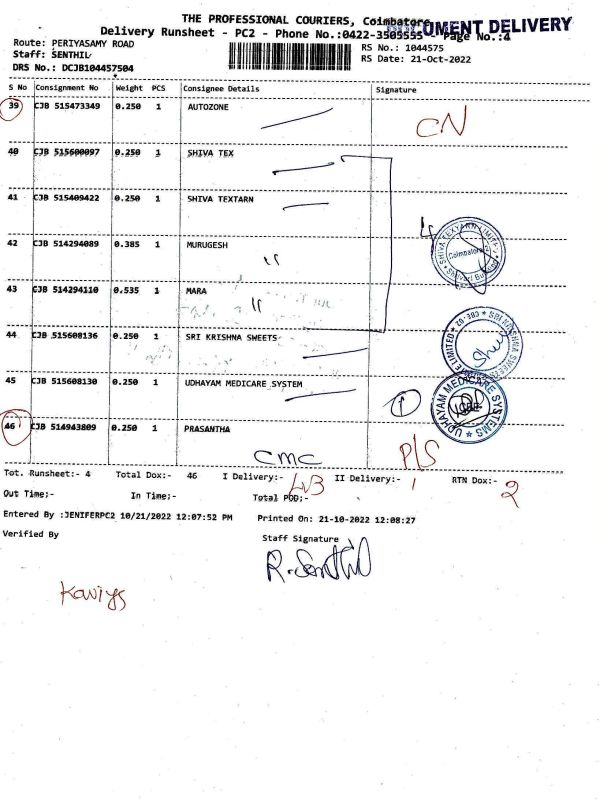 THE PROFESSIONAL COURIERS, Coimbatore
UMENT DELIVERY
Delivery Runsheet - PC2 - Phone No.:0422-3505555 - Page No.:4
Route: PERIYASAMY ROAD
RS No.: 1044575
Staff: SENTHIL
RS Date: 21-Oct-2022
DRS No.: DCJB104457504
S No Consignment No Weight PCS Consignee Details Signature
39 CJB 515473349 0.250 1 AUTOZONE
CN
40 CJB 515600097 0.250 1 SHIVA TEX
41 CJB 515409422 0.250 1 SHIVA TEXTARN
4
SHIVA TEXYARN LIMITED
Coimbatore
42 CJB 514294089 0.385 1 MURUGESH
"
43 CJB 514294110 0.535 1 MARA
"
44 CJB 515608136 0.250 1 SRI KRISHNA SWEETS
SRI KRISHNA SWEETS
LIMITED
CBE-02
45 CJB 515608130 0.250 1 UDHAYAM MEDICARE SYSTEM
1
UDHAYAM MEDICARE SYSTEMS
CBE
46 CJB 514943809 0.250 1 PRASANTHA
CMC
P/S
Tot. Runsheet:- 4 Total Dox:- 46 I Delivery:- 43 II Delivery:- 1 RTN Dox:- 2
Out Time:- In Time:- Total POD:-
Entered By :JENIFERPC2 10/21/2022 12:07:52 PM Printed On: 21-10-2022 12:08:27
Verified By Staff Signature
R. Senthil
Kaviys